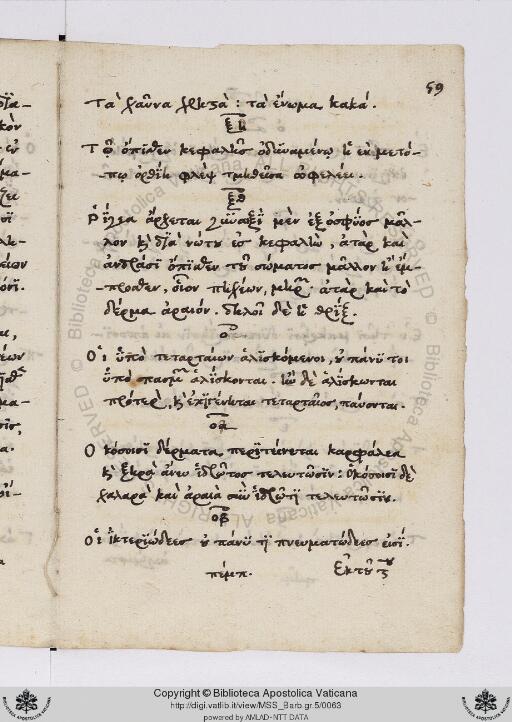 59
Τὰ χαῦνα χρηστά : τὰ ἔνωμα κακά.
ξη
Τῷ ὄπισθεν κεφαλῆς ὀδυναμένῳ ἡ ἐν μετό-
πῳ ὀρθίη φλὲψ τμηθεῖσα ὠφελέει.
ξθ
Ῥίγεα ἄρχεται γυναιξὶ μὲν ἐξ ὀσφύος μᾶλ-
λον καὶ διὰ νώτου ἐς κεφαλὴν, ἀτὰρ καὶ
ἀνδράσι ὄπισθεν τοῦ σώματος μᾶλλον ἢ ἔμ-
προσθεν, οἷον πήχεων, μηρῶν· ἀτὰρ καὶ τὸ
δέρμα ἀραιόν. δηλοῖ δὲ ἡ θρίξ.
ο
Οἱ ὑπὸ τεταρταίων ἁλισκόμενοι, οὐ πάνυ τοι
ὑπὸ σπασμῶν ἁλίσκονται. ἢν δὲ ἁλίσκωνται
πρότερον, καὶ ἐπιγένηται τεταρταῖος, παύονται.
οα
Ὁκόσοισι δέρματα περιτείνεται καρφαλέα
καὶ σκληρὰ ἄνευ ἱδρῶτος τελευτῶσιν : ὁκόσοισι δὲ
χαλαρὰ καὶ ἀραιὰ σὺν ἱδρῶτι τελευτῶσιν.
οβ
Οἱ ἰκτεριώδεες οὐ πάνυ τι πνευματώδεές εἰσι.
πέμπ.
Ἐκ τοῦ
Copyright © Biblioteca Apostolica Vaticana
http://digi.vatlib.it/view/MSS_Barb.gr.5/0063
powered by AMLAD-NTT DATA